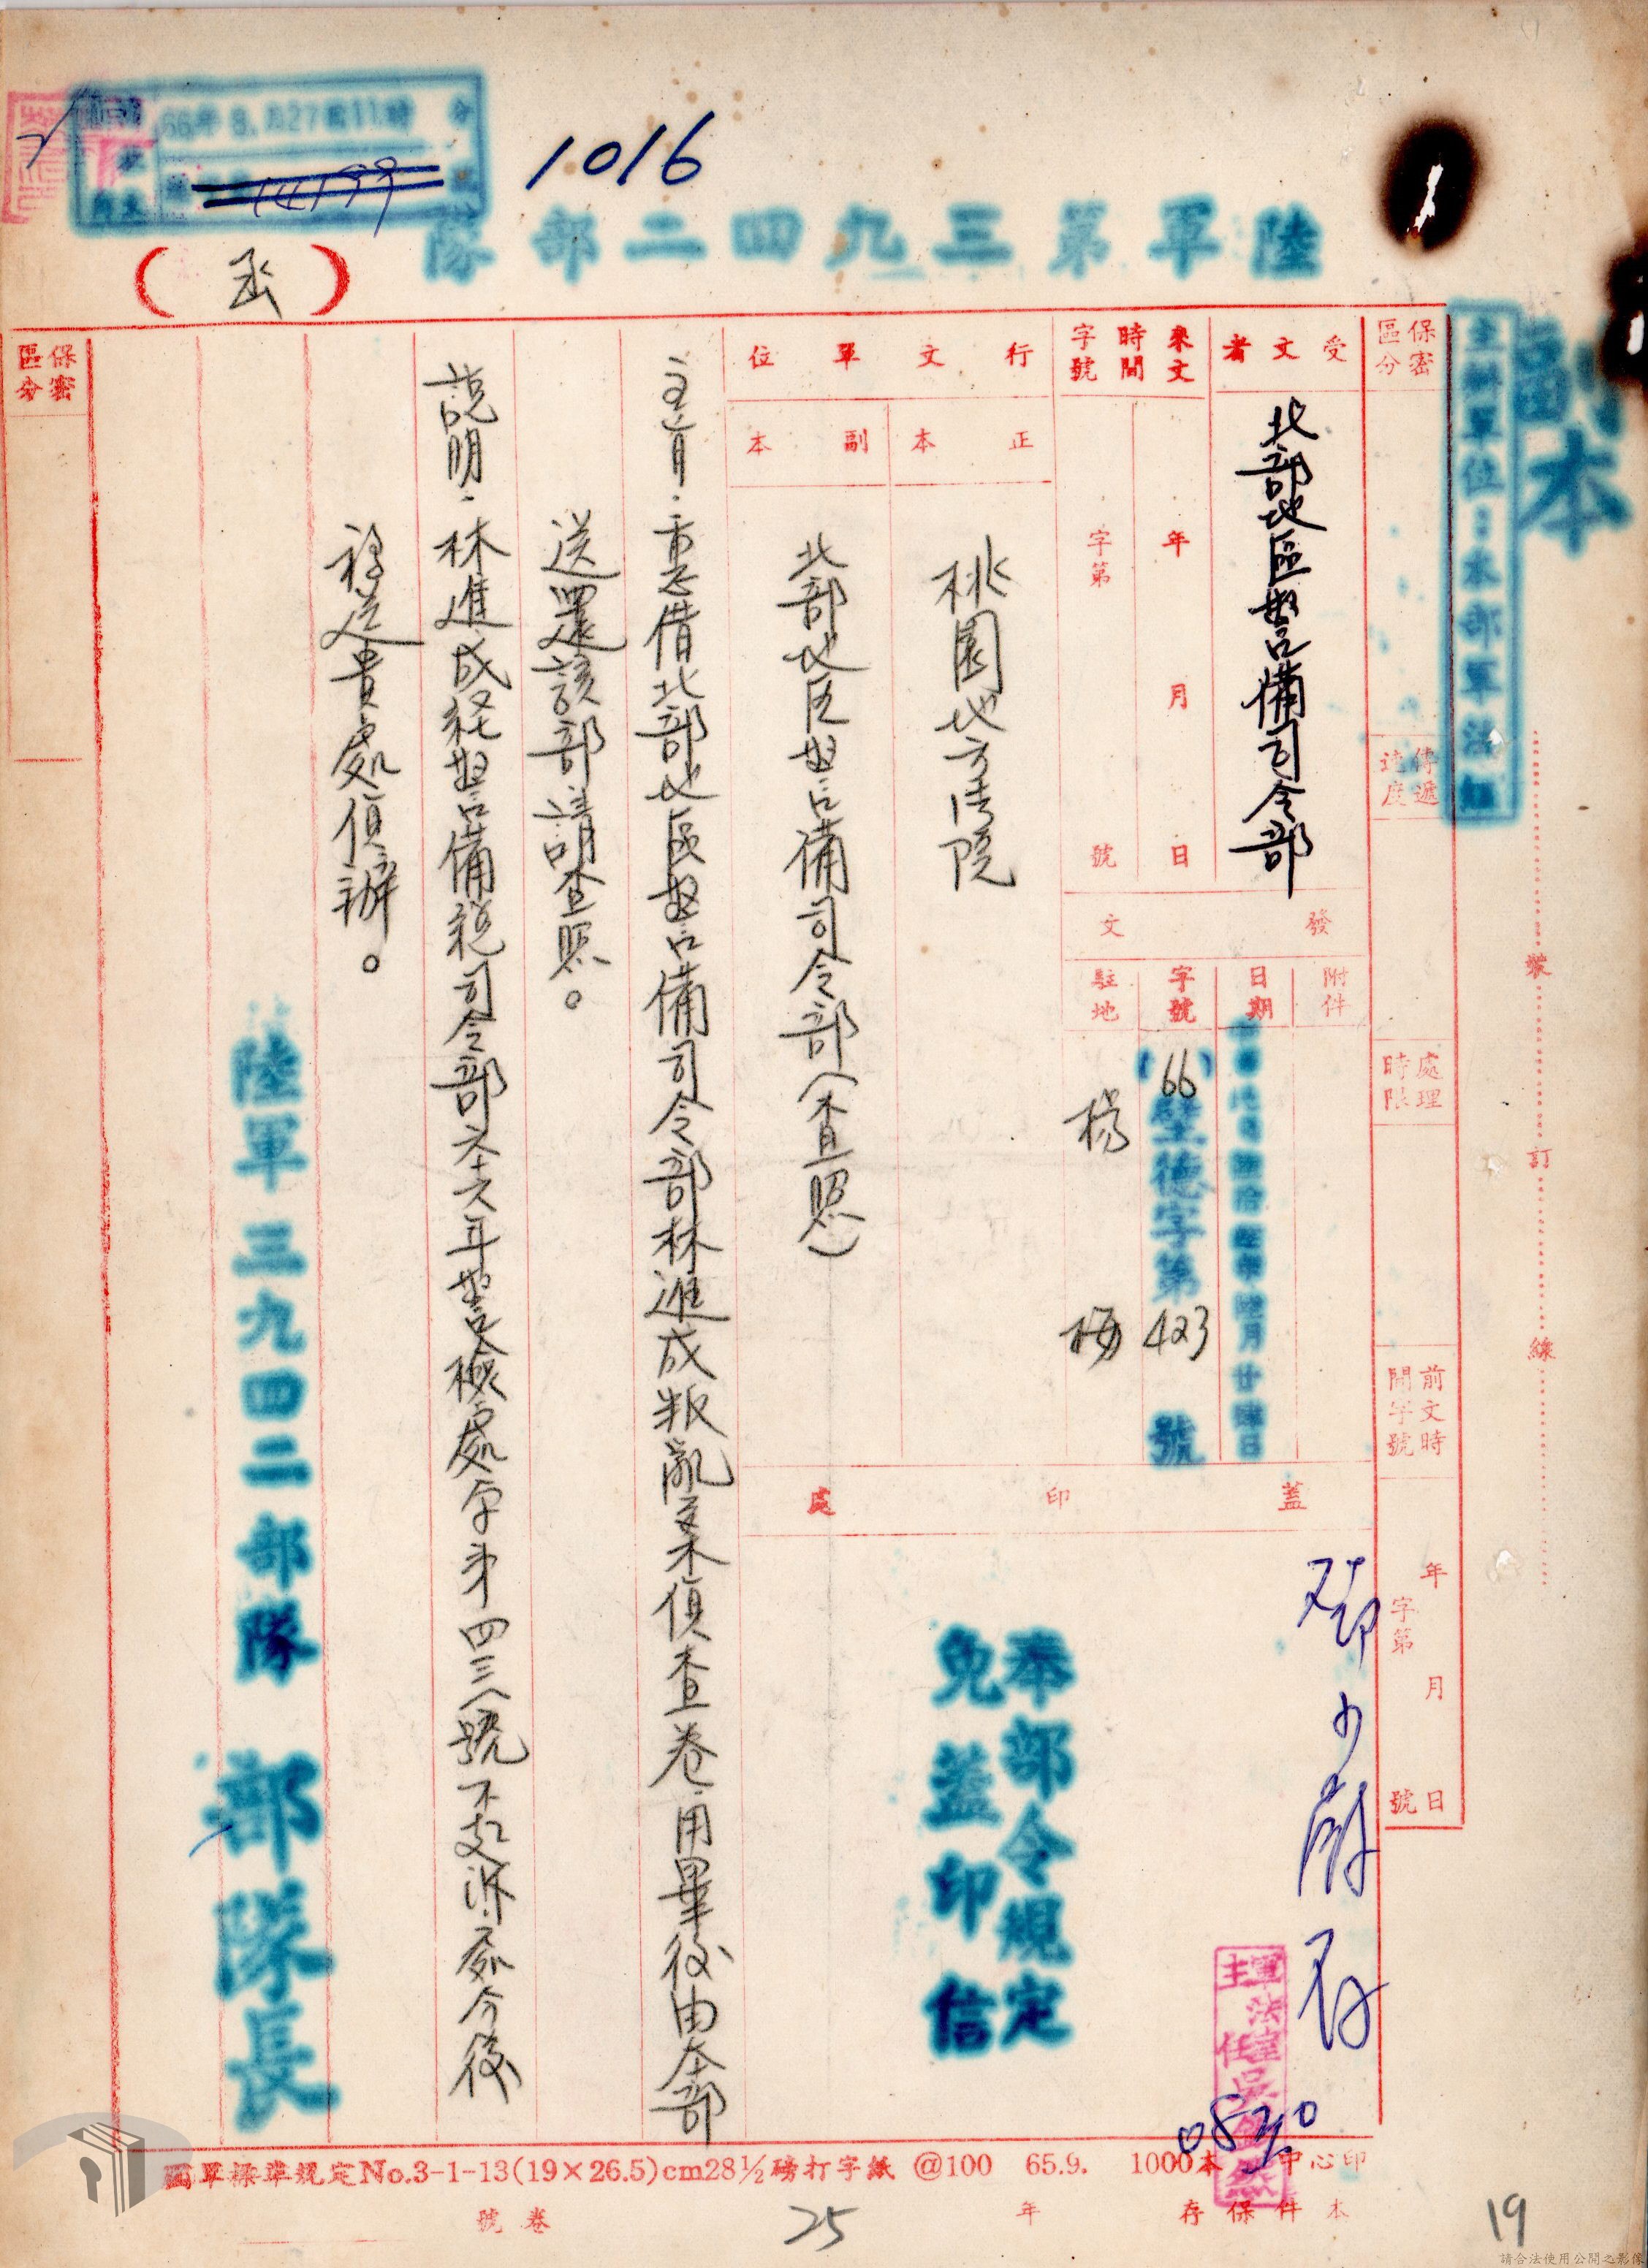 副本
主辦單位：本部軍法組
1016
陸軍第三九四二部隊
（函）
保密區分
傳遞速度
處理時限
前文時間字號
年月日
字第號
受文者
北部地區警備司令部
來文時間字號
年月日
字第號
行文單位
正本
桃園地方法院
副本
北部地區警備司令部（查照）
發文
附件
日期
字號
(66)壁德字第423號
駐地
楊梅
蓋印處
奉部令規定
免蓋印信
主旨：重忐借北部地區警備司令部林進成叛亂案偵查卷，用畢後由本部
送還該部請查照。
說明：林進成經警備總司令部六十六年警檢處字第四三八號不起訴處分後
移送貴處偵辦。
陸軍三九四二部隊 部隊長
保密區分
裝訂線
0830
國軍標準規定No.3-1-13(19×26.5)cm28½磅打字紙 @100 65.9. 1000本 中心印
本件保存年
25
卷號
19
請合法使用公開之影像